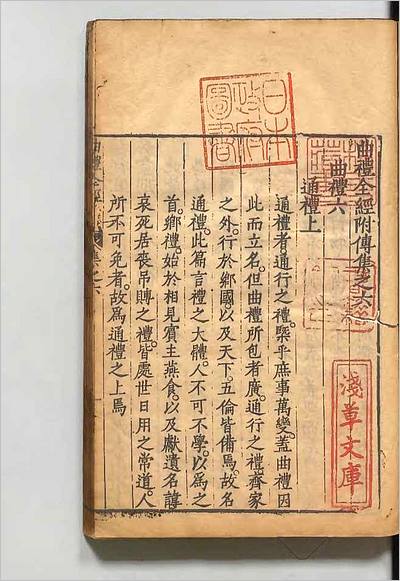 曲禮全經附傳集之六
曲禮六
通禮上
通禮者通行之禮槩乎庶事萬變蓋曲禮因
此而立名但曲禮所包者廣通行之禮齊家
之外行於鄉國以及天下五倫皆備焉故名
通禮此篇言禮之大體人不可不學以爲之
首鄉禮始於相見賓主燕食以及獻遺名諱
哀死居喪吊賻之禮皆處世日用之常道人
所不可免者故爲通禮之上焉
日本
政府
圖書
淺草文庫